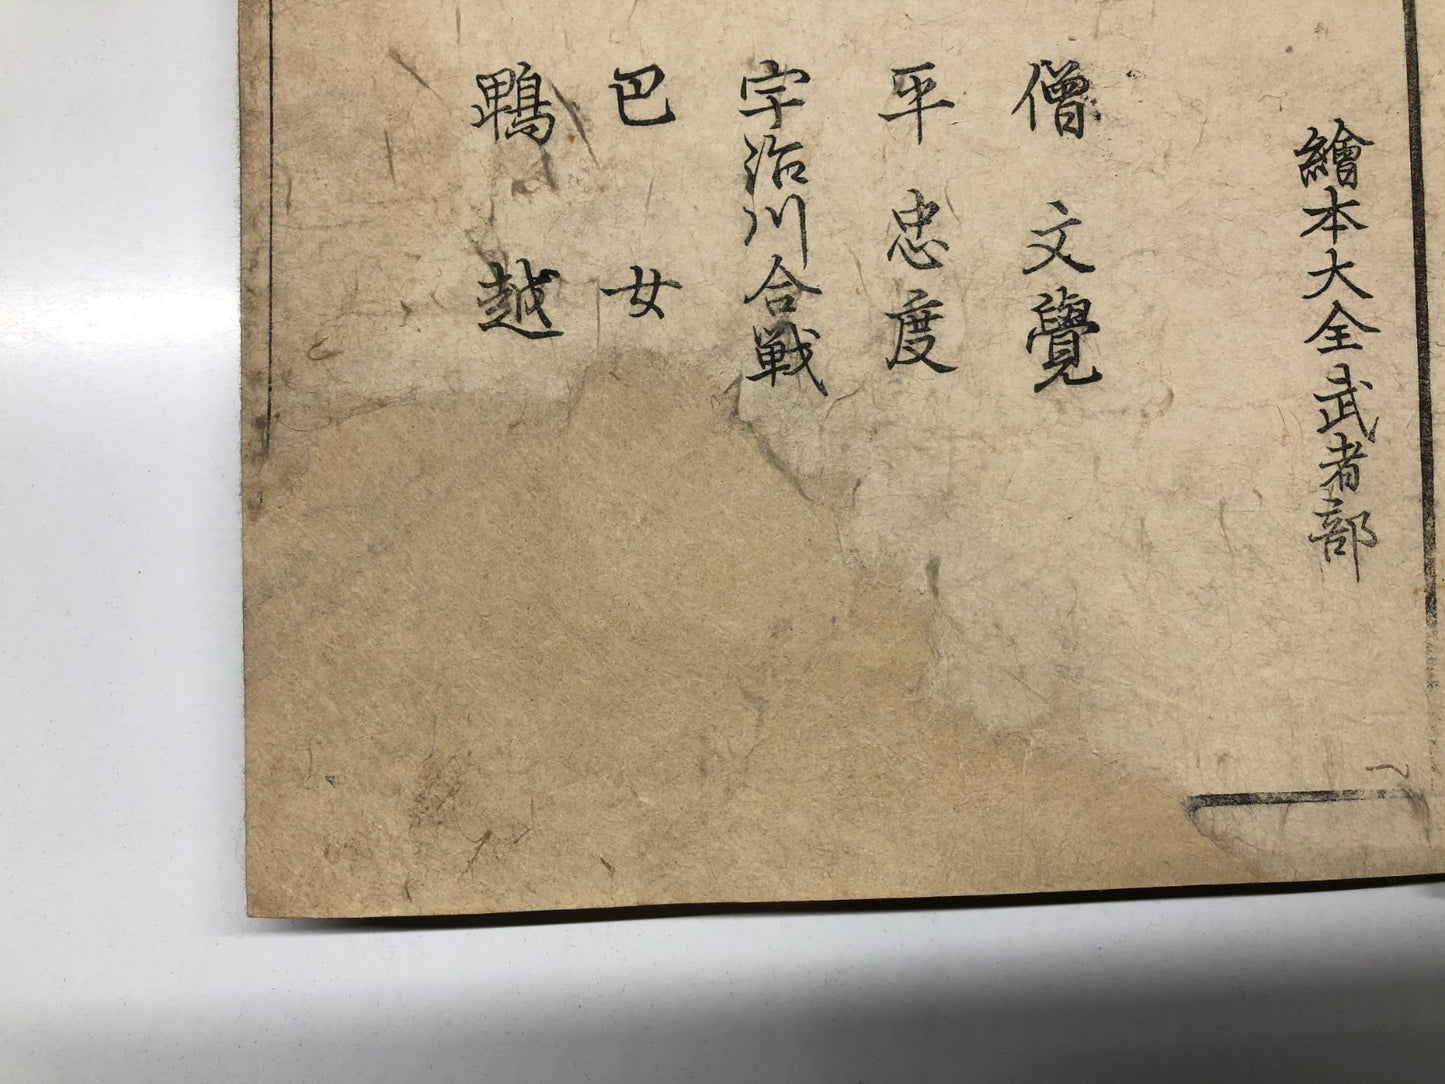 繪本大全武者部
僧文覺
平忠度
宇治川合戦
巴女
鵯越